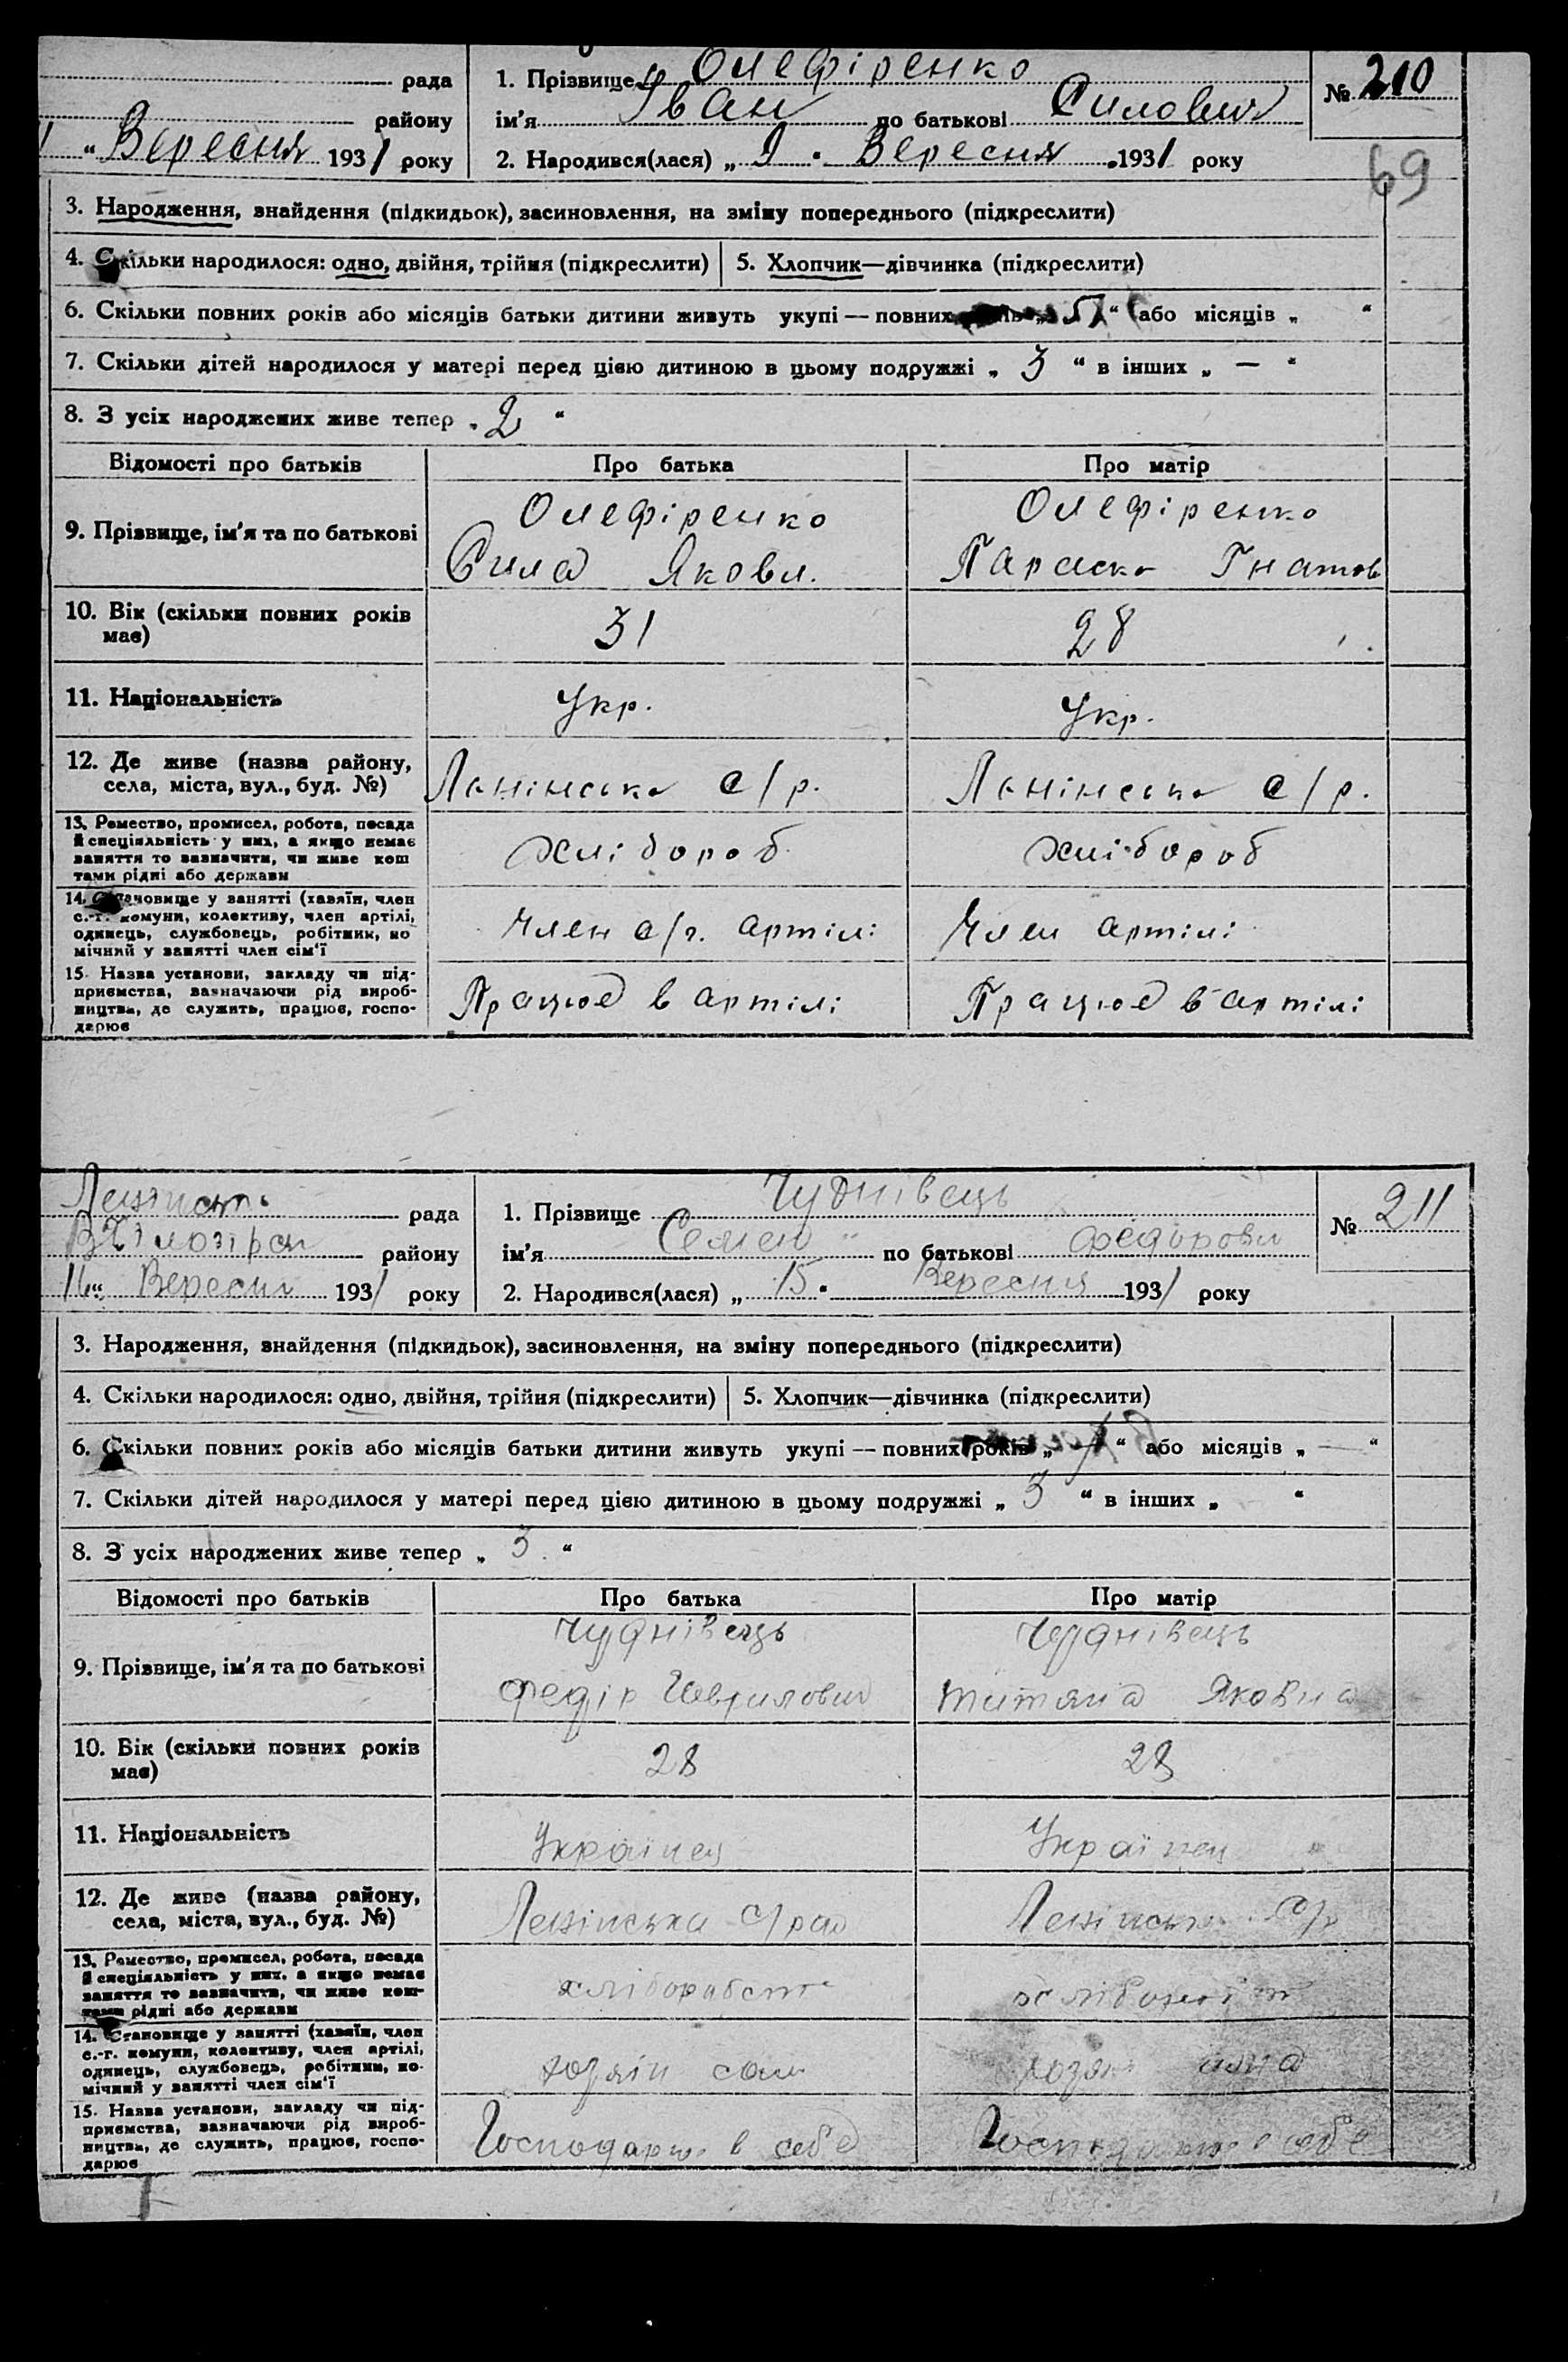 рада
1. Прізвище Олефіренко
№ 210
району
ім'я Іван по батькові Силович
„ Вересня 1931 року
2. Народився(лася) „ 9 " Вересня 1931 року
69
3. Народження, знайдення (підкидьок), засиновлення, на зміну попереднього (підкреслити)
4. Скільки народилося: одно, двійня, трійня (підкреслити)
5. Хлопчик—дівчинка (підкреслити)
6. Скільки повних років або місяців батьки дитини живуть укупі — повних “ або місяців „ “
7. Скільки дітей народилося у матері перед цією дитиною в цьому подружжі „ 3 “ в інших „ — “
8. З усіх народжених живе тепер „ 2 “
Відомості про батьків
Про батька
Про матір
9. Прізвище, ім'я та по батькові
Олефіренко
Сила Яковл.
Олефіренко
Параска Гнатов
10. Вік (скільки повних років
має)
31
28
11. Національність
Укр.
Укр.
12. Де живе (назва району,
села, міста, вул., буд. №)
Ленінська с/р.
Ленінська с/р.
13. Ремество, промисел, робота, посада
й спеціяльність у них, а якщо немає
заняття то зазначити, чи живе кош
тами рідні або держави
хлібороб
хлібороб
14. Становище у занятті (хазяїн, член
с.-г. комуни, колективу, член артілі,
одинець, службовець, робітник, по
мічний у занятті член сім'ї
Член с/г. артілі
Член артілі
15. Назва установи, закладу чи під-
приємства, зазначаючи рід вироб-
ництва, де служить, працює, госпо-
дарює
Працює в артілі
Працює в артілі
рада
1. Прізвище Чуднівець
№ 211
району
ім'я Семен по батькові Федорови
16 „ Вересня 1931 року
2. Народився(лася) „ 15 " Вересня 1931 року
3. Народження, знайдення (підкидьок), засиновлення, на зміну попереднього (підкреслити)
4. Скільки народилося: одно, двійня, трійня (підкреслити)
5. Хлопчик—дівчинка (підкреслити)
6. Скільки повних років або місяців батьки дитини живуть укупі — повних років „ “ або місяців „ — “
7. Скільки дітей народилося у матері перед цією дитиною в цьому подружжі „ 3 “ в інших „ “
8. З усіх народжених живе тепер „ 3 “
Відомості про батьків
Про батька
Про матір
9. Прізвище, ім'я та по батькові
Чуднівець
Федір Гаврилович
Чуднівець
Титяна Яковна
10. Вік (скільки повних років
має)
28
28
11. Національність
Українец
Українец
12. Де живе (назва району,
села, міста, вул., буд. №)
Ленінська с/рад
Ленінська с/р
13. Ремество, промисел, робота, посада
й спеціяльність у них, а якщо немає
заняття то зазначити, чи живе кош-
тами рідні або держави
14. Становище у занятті (хазяїн, член
с.-г. комуни, колективу, член артілі,
одинець, службовець, робітник, по-
мічний у занятті член сім'ї
хозяін сам
15. Назва установи, закладу чи під-
приємства, зазначаючи рід вироб-
ництва, де служить, працює, госпо-
дарює
Господарює в себе
Господарює в себе